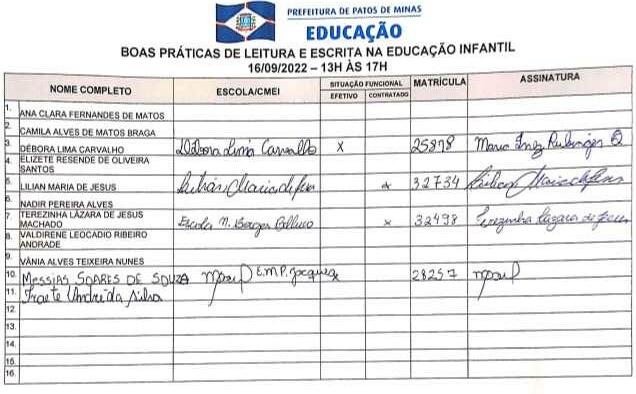 PREFEITURA DE PATOS DE MINAS
EDUCAÇÃO
BOAS PRÁTICAS DE LEITURA E ESCRITA NA EDUCAÇÃO INFANTIL
16/09/2022 – 13H ÀS 17H
NOME COMPLETO ESCOLA/CMEI SITUAÇÃO FUNCIONAL MATRÍCULA ASSINATURA
EFETIVO CONTRATADO
1. ANA CLARA FERNANDES DE MATOS
2. CAMILA ALVES DE MATOS BRAGA
3. DÉBORA LIMA CARVALHO Débora Lima Carvalho X 25878 Maria Inez
4. ELIZETE RESENDE DE OLIVEIRA
SANTOS
5. LILIAN MARIA DE JESUS Lilian Maria de Jesus x 32734 Lilian Maria de Jesus
6. NADIR PEREIRA ALVES
7. TEREZINHA LÁZARA DE JESUS
MACHADO Escola M. Borges x 32498 Terezinha Lázara de Jesus
8. VALDIRENE LEOCADIO RIBEIRO
ANDRADE
9. VÂNIA ALVES TEIXEIRA NUNES
10. MESSIAS SOARES DE SOUZA E.M.P. Jacques x 28257
11. da Silva
12.
13.
14.
15.
16.